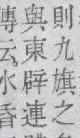 則九旗之
與東辟連
傳云水香